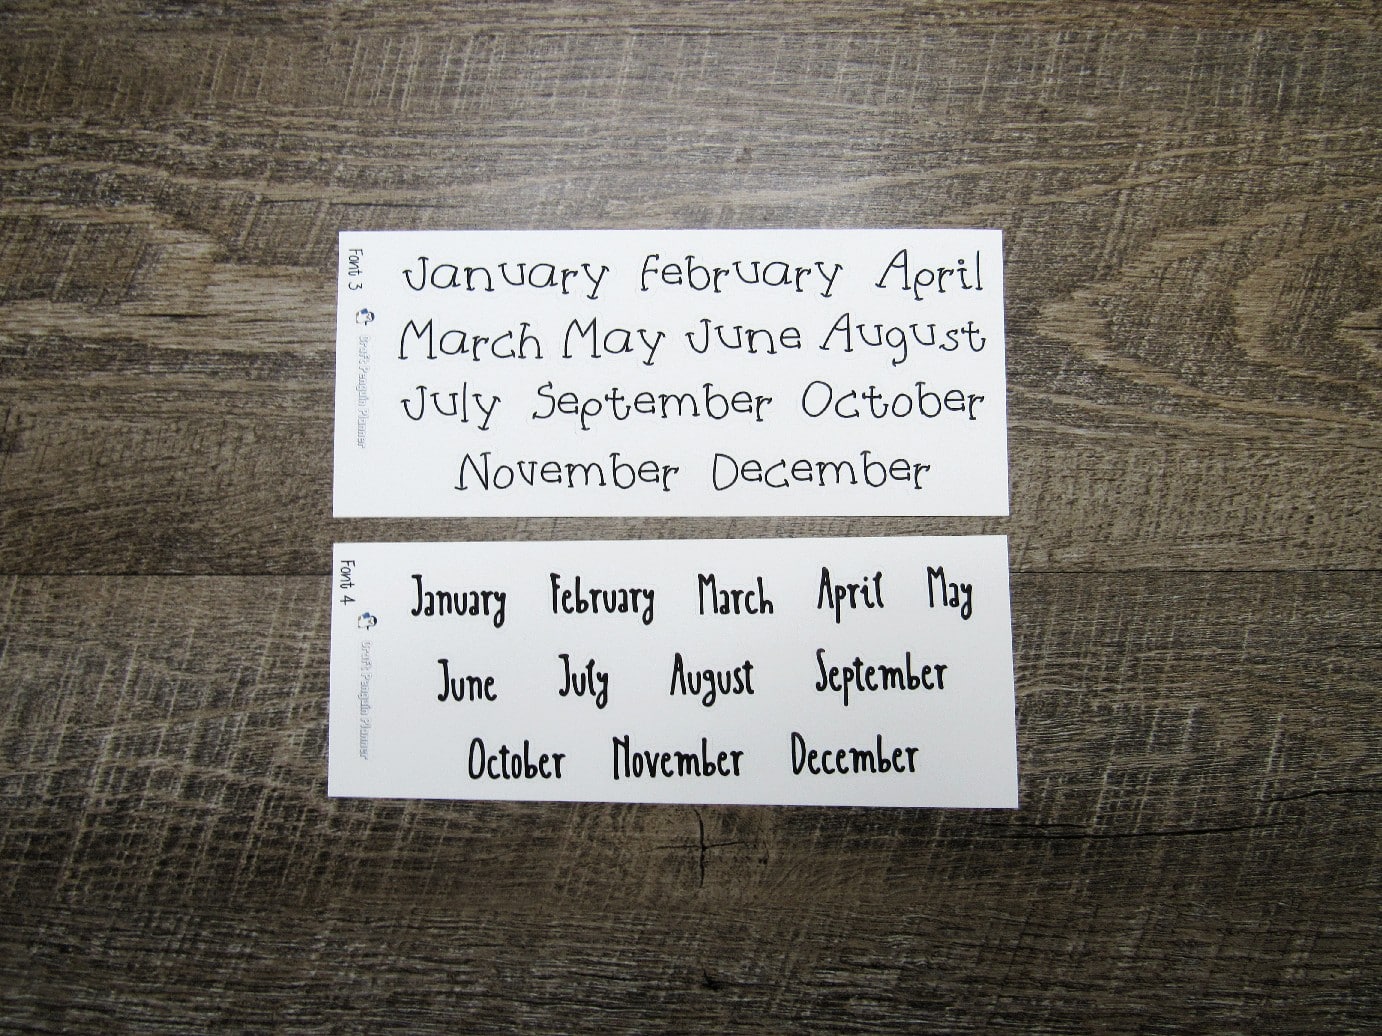 Font 3
January February April
March May June August
July September October
November December
Font 4
January February March April May
June July August September
October November December